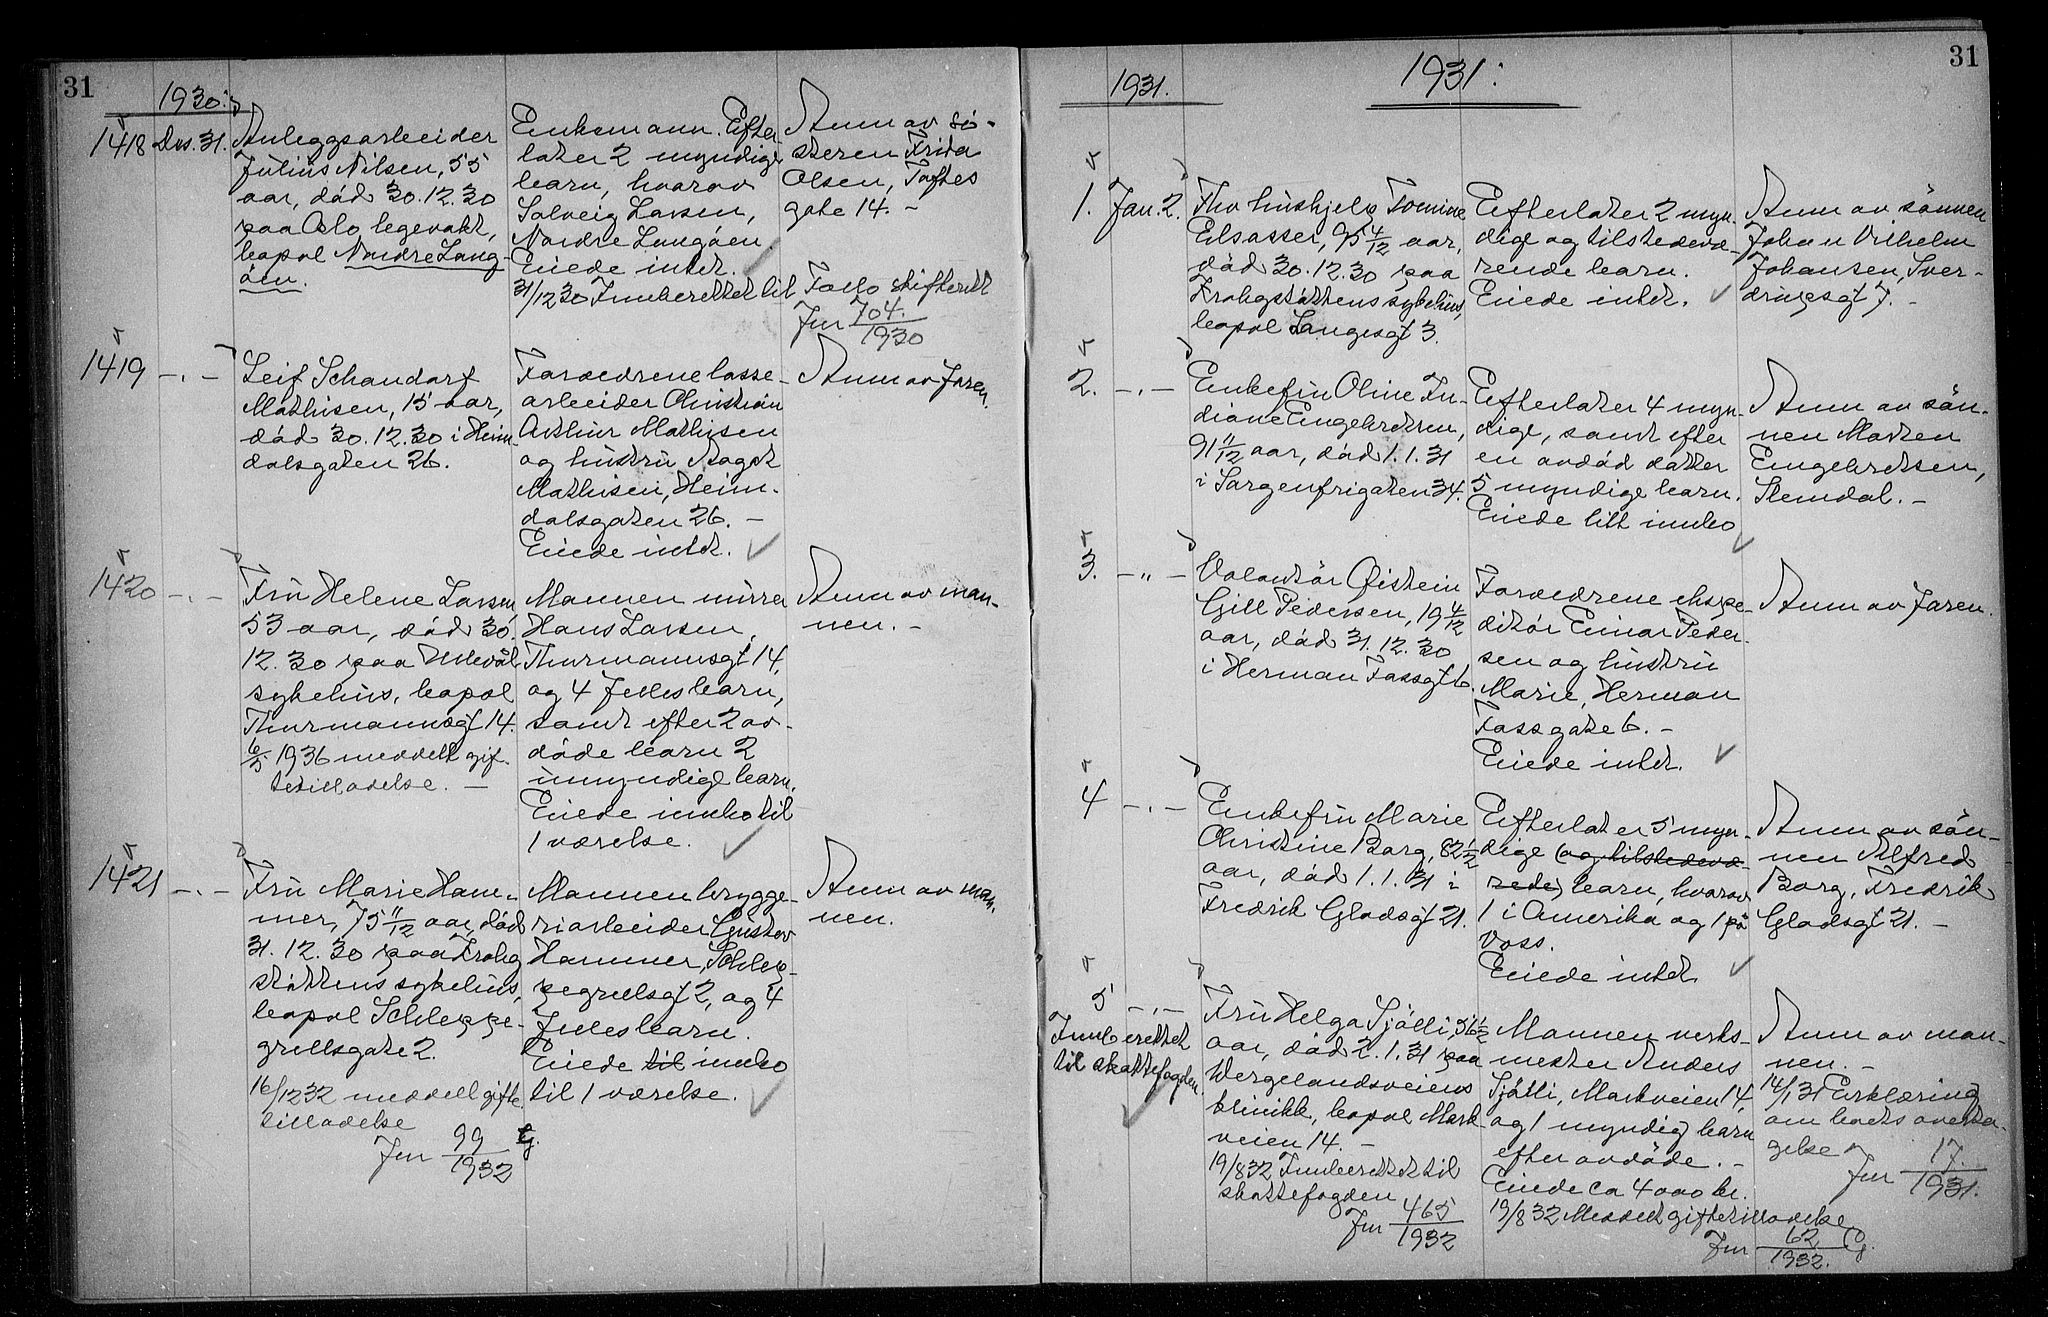 31
1930:
1418 Des. 31.
Anleggsarbeider
Julius Nilsen, 55
aar, död 30.12.30
paa Oslo legevakt,
bopæl Nordre Lang-
öen.
Enkemann. Efter-
later 2 myndige
barn, hvorav
Solveig Larsen,
Nordre Langöen.
Eiede intet.
31/12 30 Innberettet til Follo skifterett
Jnr 704/1930
Anm av sö-
steren Frida
Olsen, Toftes
gate 14. -
1419 -.-
Leif Schandorf
Mathisen, 15 aar,
död 30.12.30 i Heim-
dalsgaten 26.
Forældrene losse-
arbeider Christian
Arthur Mathisen
og hustru Magot
Mathisen, Heim-
dalsgaten 26. -
Eiede intet.
Anm av faren.
1420 -.-
Fru Helene Larsen
53 aar, död 30.
12.30 paa Ullevål
sykehus, bopæl
Thurmannsgt 14.
6/5 1936 meddelt gif-
tetilladelse. -
Mannen murer
Hans Larsen,
Thurmannsgt 14,
og 4 felles barn,
samt efter 2 av-
döde barn 2
umyndige barn.
Eiede innbo til
1 værelse.
Anm av man-
nen. -
1421 -.-
Fru Marie Ham-
mer, 75 11/12 aar, död
31.12.30 paa Krohg-
stöttens sykehus,
bopæl Schleppe-
grellsgate 2.
16/1232 meddelt gifte-
tilladelse
Jnr 99/1932 G.
Mannen brygge-
riarbeider Gustav
Hammer, Schlep-
pegrellsgt 2, og 4
felles barn.
Eiede til innbo
til 1 værelse.
Anm av man-
nen.
31
1931.
1931:
1. Jan. 2.
Fhv hushjelp Tomine
Elsasser, 95 4/12 aar,
död 30.12.30 paa
Krohgstöttens sykehus,
bopæl Langesgt 3.
Efterlater 2 myn-
dige og tilstedevæ-
rende barn.
Eiede intet.
Anm av sönnen
Johan Vilhelm
Johansen, Sver-
drupsgt 7. -
2. -.-
Enkefru Oline In-
diane Engebretsen,
91 11/12 aar, död 1.1.31
i Sorgenfrigaten 34.
Efterlater 4 myn-
dige, samt efter
en avdöd datter
5 myndige barn.
Eiede litt innbo
Anm av sön-
nen Morten
Engebretsen,
Slemdal. -
3. -„-
Volontör Øistein
Gill Pedersen, 19 4/12
aar, död 31.12.30
i Herman Fossgt 6.
Forældrene ekspe-
ditör Einar Peder-
sen og hustru
Marie, Herman
Fossgate 6. -
Eiede intet.
Anm av faren.
4 -.-
Enkefru Marie
Christine Borg, 82 1/2
aar, död 1.1.31 i
Fredrik Gladsgt 21.
Efterlater 5 myn-
dige (og tilstedevæ-
rede) barn, hvorav
1 i Amerika og 1 på
Voss.
Eiede intet
Anm av sön-
nen Alfred
Borg, Fredrik
Gladsgt 21. -
5 -.-
Innberettet
til skattefogden
Fru Helga Sjölli, 56 1/2
aar, död 2.1.31 paa
Wergelandsveiens
klinikk, bopæl Mark-
veien 14. -
19/832 Innberettet til
skattefogden
Jnr 465/1932
Mannen verks-
mester Anders
Sjölli, Markveien 14,
og 1 myndig barn
efter avdöde. -
Eiede ca 4000 kr.
19/832 Meddelt giftetilladelse
Jnr 62/1932. G.
Anm av man-
nen -
14/1 31 Erklæring
om boets overta-
gelse
Jnr 17./1931.